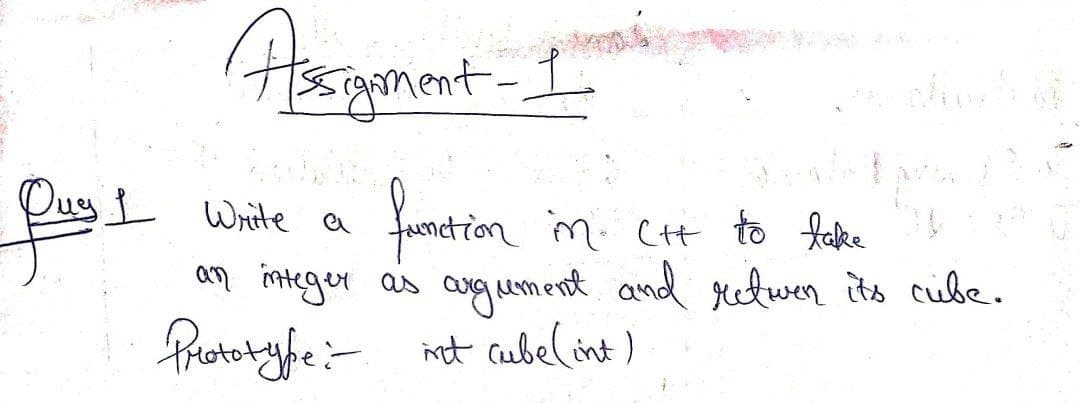 Assigment-1
Ques 1 Write a function in C++ to take
an integer as argument and return its cube.
Prototype:- int cube(int)